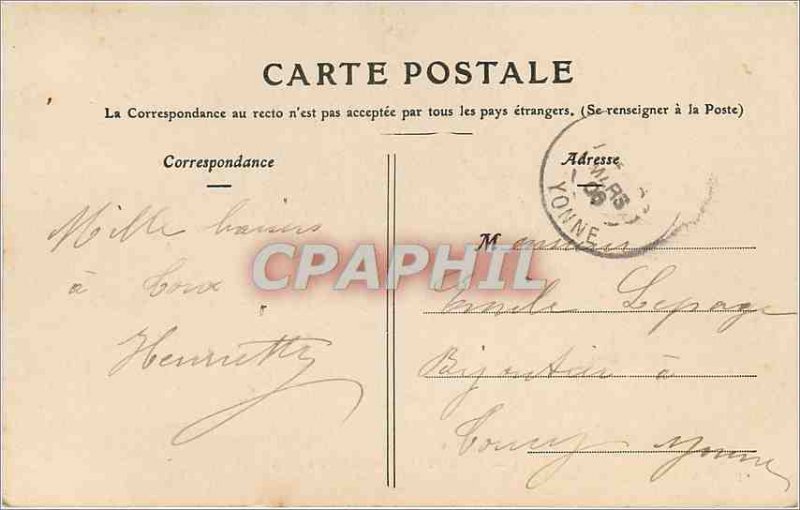 CARTE POSTALE
La Correspondance au recto n'est pas acceptée par tous les pays étrangers. (Se renseigner à la Poste)
Correspondance
Mille baisers
à
Henriette
Adresse
MARS
06
YONNE
Monsieur
Lepage
Bijoutier à
Yonne
CPAPHIL